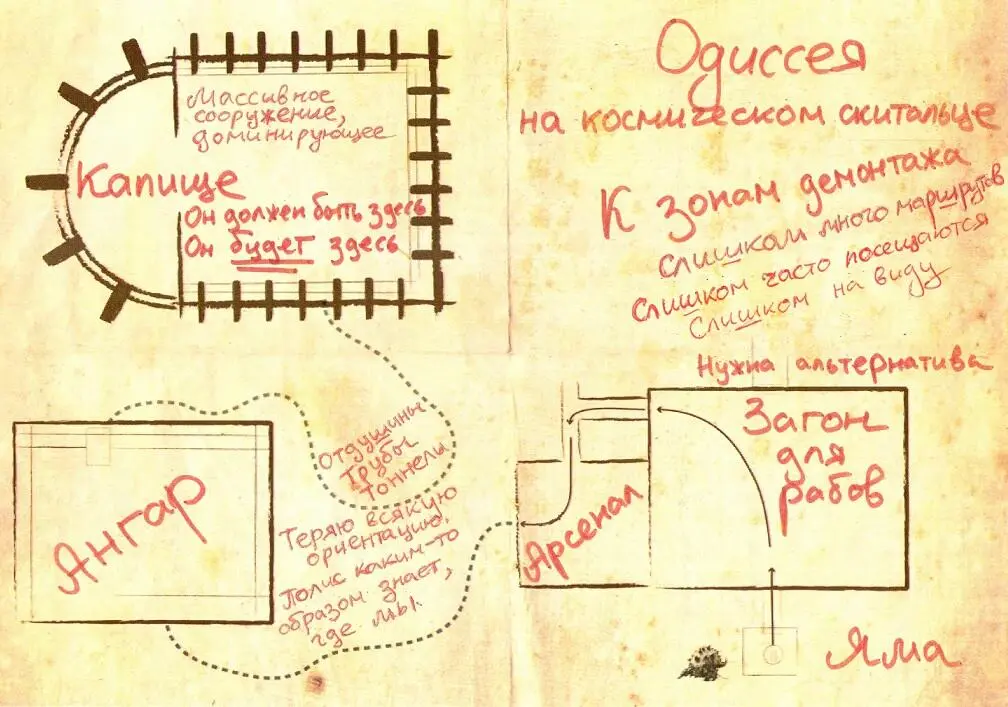 Одиссея
на космическом скитальце
К зонам демонтажа
слишком много маршрутов
слишком часто посещаются
слишком на виду
Нужна альтернатива
Массивное
сооружение,
доминирующее
Капище
Он должен быть здесь
Он будет здесь
Отдушины
трубы
тоннели
Теряю всякую
ориентацию,
полис каким-то
образом знает,
где мы.
Ангар
Арсенал
Загон
для
рабов
Яма